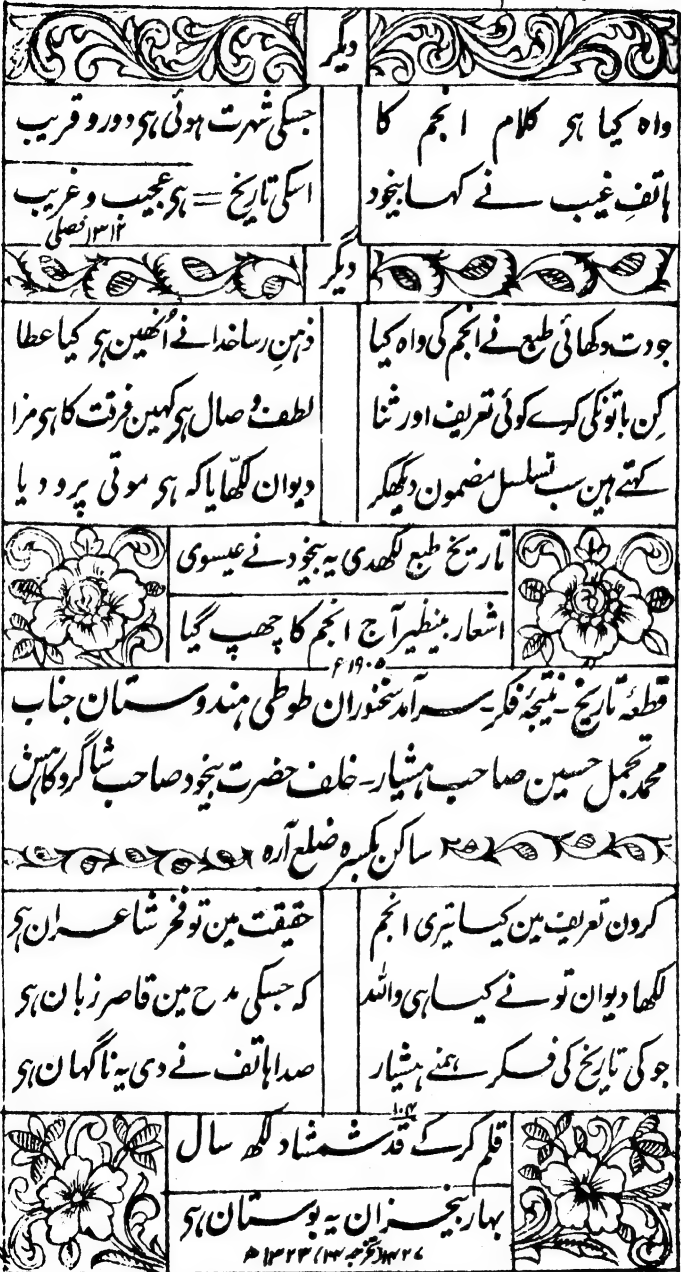 دیگر
واہ کیا ہی کلام انجم کا جسکی شہرت ہوئی ہی دور و قریب
ہاتفِ غیب نے کہا بیخود اسکی تاریخ = ہی عجیب و غریب
۱۳۱۲ فصلی
دیگر
جودت دکھائی طبع نے انجم کی واہ کیا ذہنِ رسا خدا نے اُنھین ہی کیا عطا
کِن باتونکی کرے کوئی تعریف اور ثنا لطفِ وصال ہی کہین فرقت کا ہی مزا
کہتے ہین سب تسلسل مضمون دیکھکر دیوان لکھّا یا کہ ہی موتی پرو دیا
تاریخ طبع لکھدی یہ بیخود نے عیسوی
اشعار بینظیر آج انجم کا چھپ گیا
۱۹۰۵ء
قطعۂ تاریخ ۔ نتیجۂ فکر ۔ سرآمد سخنوران طوطی ہندوستان جناب
محمد تجمل حسین صاحب ہشیار ۔ خلف حضرت بیخود صاحب شاگرد
ساکن بکسرہ ضلع آرہ
کرون تعریف مین کیا تیری انجم حقیقت مین تو فخر شاعران ہی
لکھا دیوان تو نے کیسا ہی واللہ کہ جسکی مدح مین قاصر زبان ہی
جو کی تاریخ کی فکر ہمنے ہشیار صدا ہاتف نے دی یہ ناگہان ہی
قلم کرکے قد شمشاد لکھ سال
۱۰۴
بہار بیخزان یہ بوستان ہی
۱۳۲۳